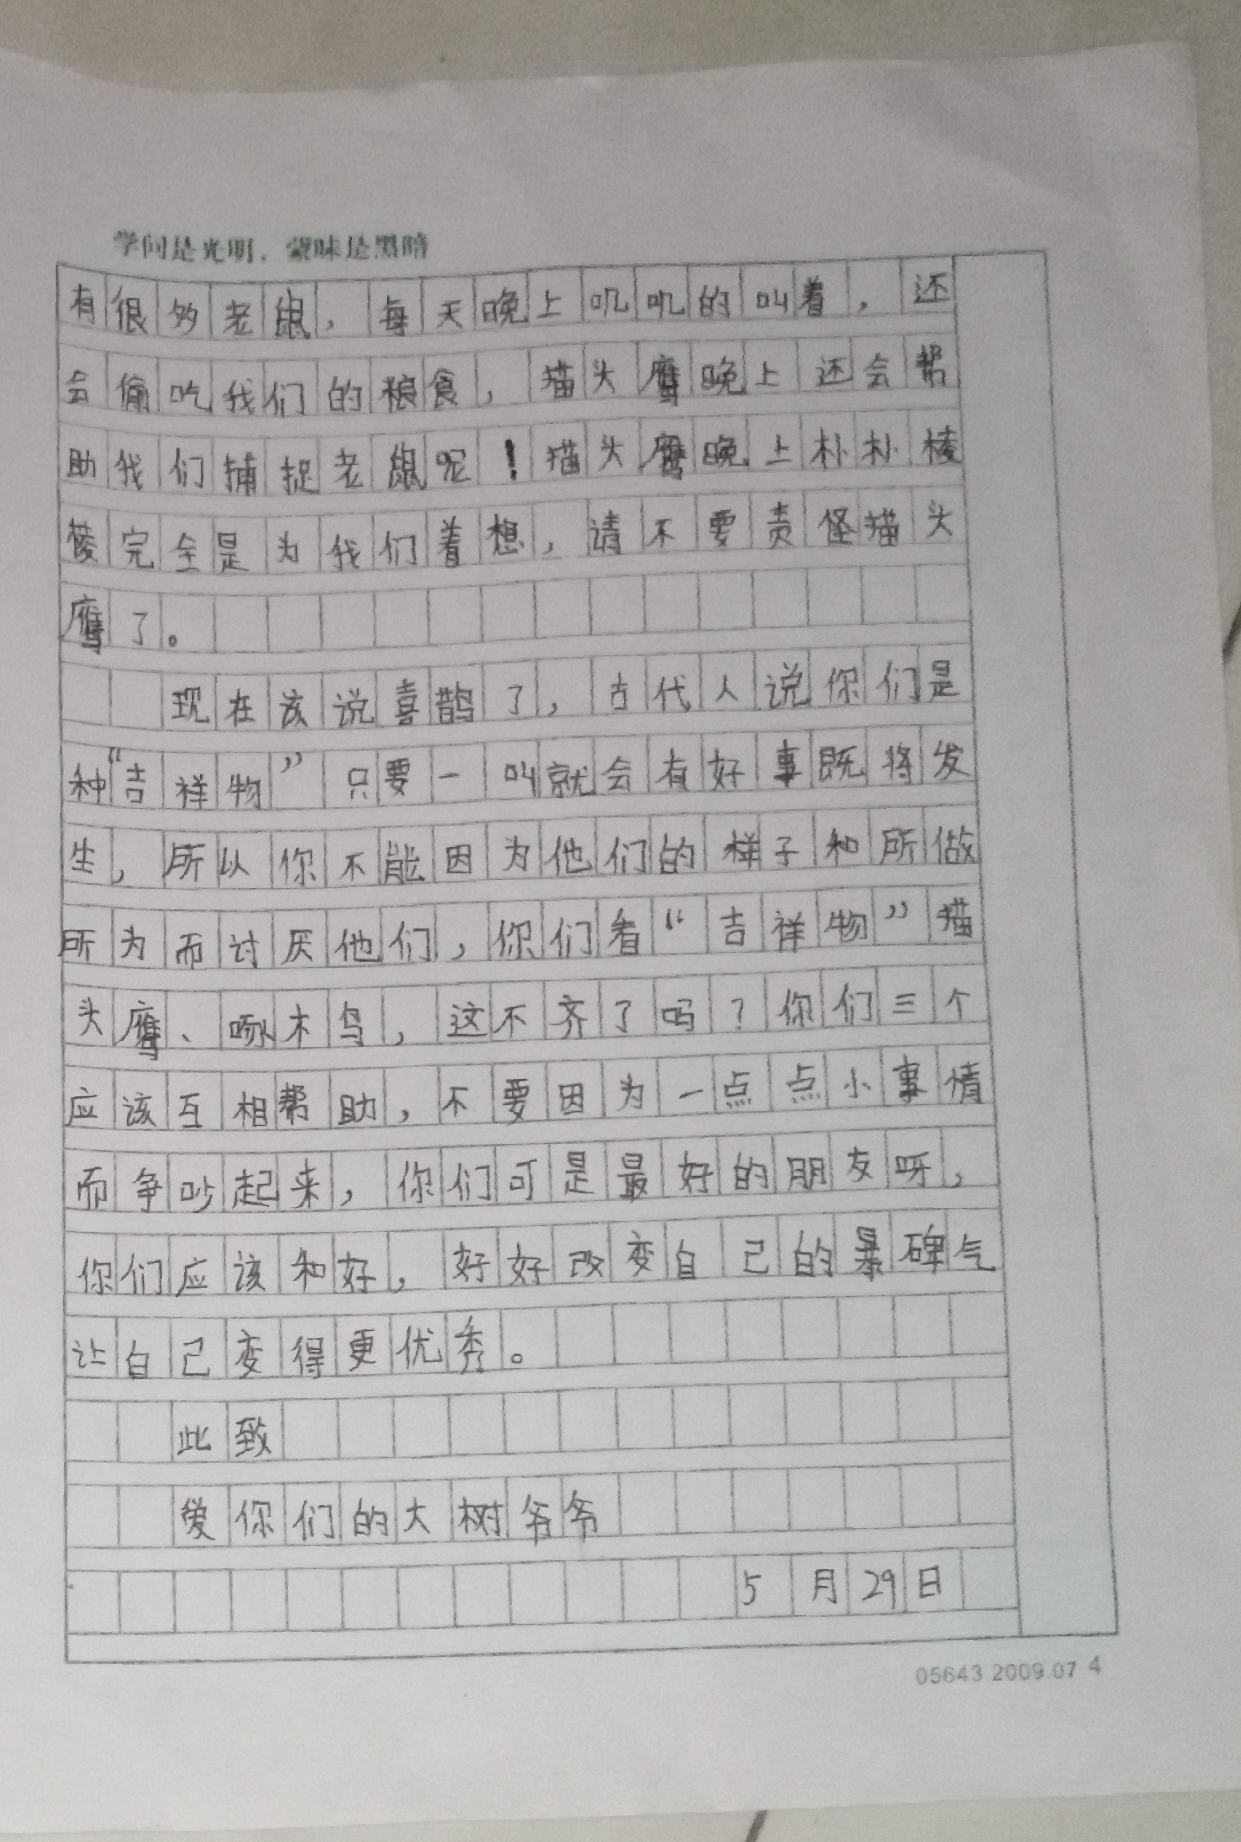 学问是光明，蒙昧是黑暗
有很多老鼠，每天晚上叽叽的叫着，还
会偷吃我们的粮食，猫头鹰晚上还会帮
助我们捕捉老鼠呢！猫头鹰晚上朴朴棱
棱完全是为我们着想，请不要责怪猫头
鹰了。
现在该说喜鹊了，古代人说你们是
种“吉祥物”只要一叫就会有好事既将发
生，所以你不能因为他们的样子和所做
所为而讨厌他们，你们看“吉祥物”猫
头鹰、啄木鸟，这不齐了吗？你们三个
应该互相帮助，不要因为一点点小事情
而争吵起来，你们可是最好的朋友呀，
你们应该和好，好好改变自己的暴碑气
让自己变得更优秀。
此致
爱你们的大树爷爷
5月29日
05643.2009.07 4